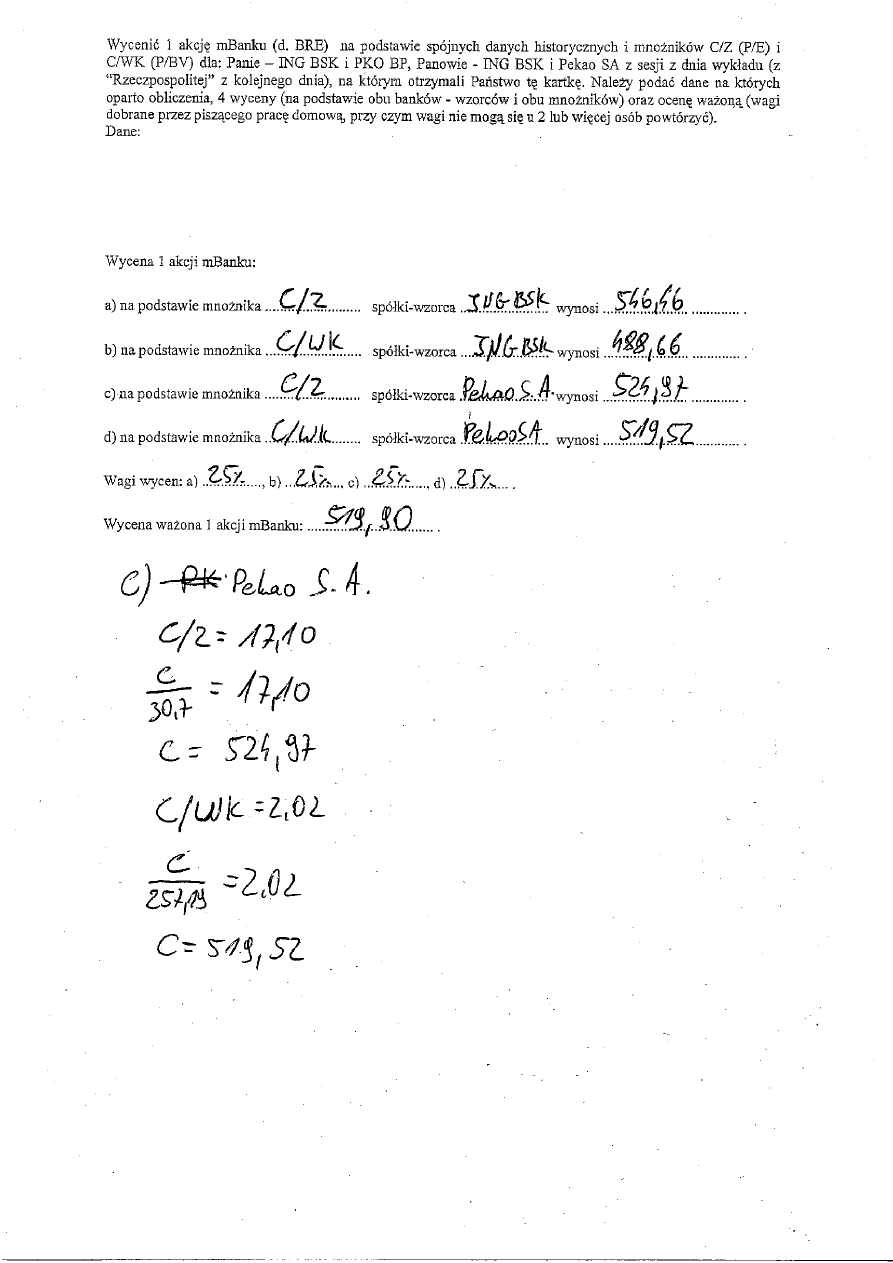 Wycenić 1 akcję mBanku (d. BRE) na podstawie spójnych danych historycznych i mnożników C/Z (P/E) i
C/WK (P/BV) dla: Panie – ING BSK i PKO BP, Panowie - ING BSK i Pekao SA z sesji z dnia wykładu (z
“Rzeczpospolitej” z kolejnego dnia), na którym otrzymali Państwo tę kartkę. Należy podać dane na których
oparto obliczenia, 4 wyceny (na podstawie obu banków - wzorców i obu mnożników) oraz ocenę ważoną (wagi
dobrane przez piszącego pracę domową, przy czym wagi nie mogą się u 2 lub więcej osób powtórzyć).
Dane:
Wycena 1 akcji mBanku:
a) na podstawie mnożnika ....C/Z.......... spółki-wzorca ..ING BSK wynosi ...546,46 .............. .
b) na podstawie mnożnika ...C/WK...... spółki-wzorca ...ING BSK wynosi ...488,66 .............. .
c) na podstawie mnożnika ......C/Z.......... spółki-wzorca .Pekao S.A. wynosi ....524,97 .............. .
d) na podstawie mnożnika ..C/WK........ spółki-wzorca .Pekao SA wynosi ....519,52.............. .
Wagi wycen: a) ..25%....., b) ..25%..., c) ..25%....., d) ..25%.... .
Wycena ważona 1 akcji mBanku: .....519,90....... .
C) PK Pekao S.A.
C/Z = 17,10
C/30,7 = 17,10
C = 524,97
C/WK = 2,02
C/257,19 = 2,02
C = 519,52